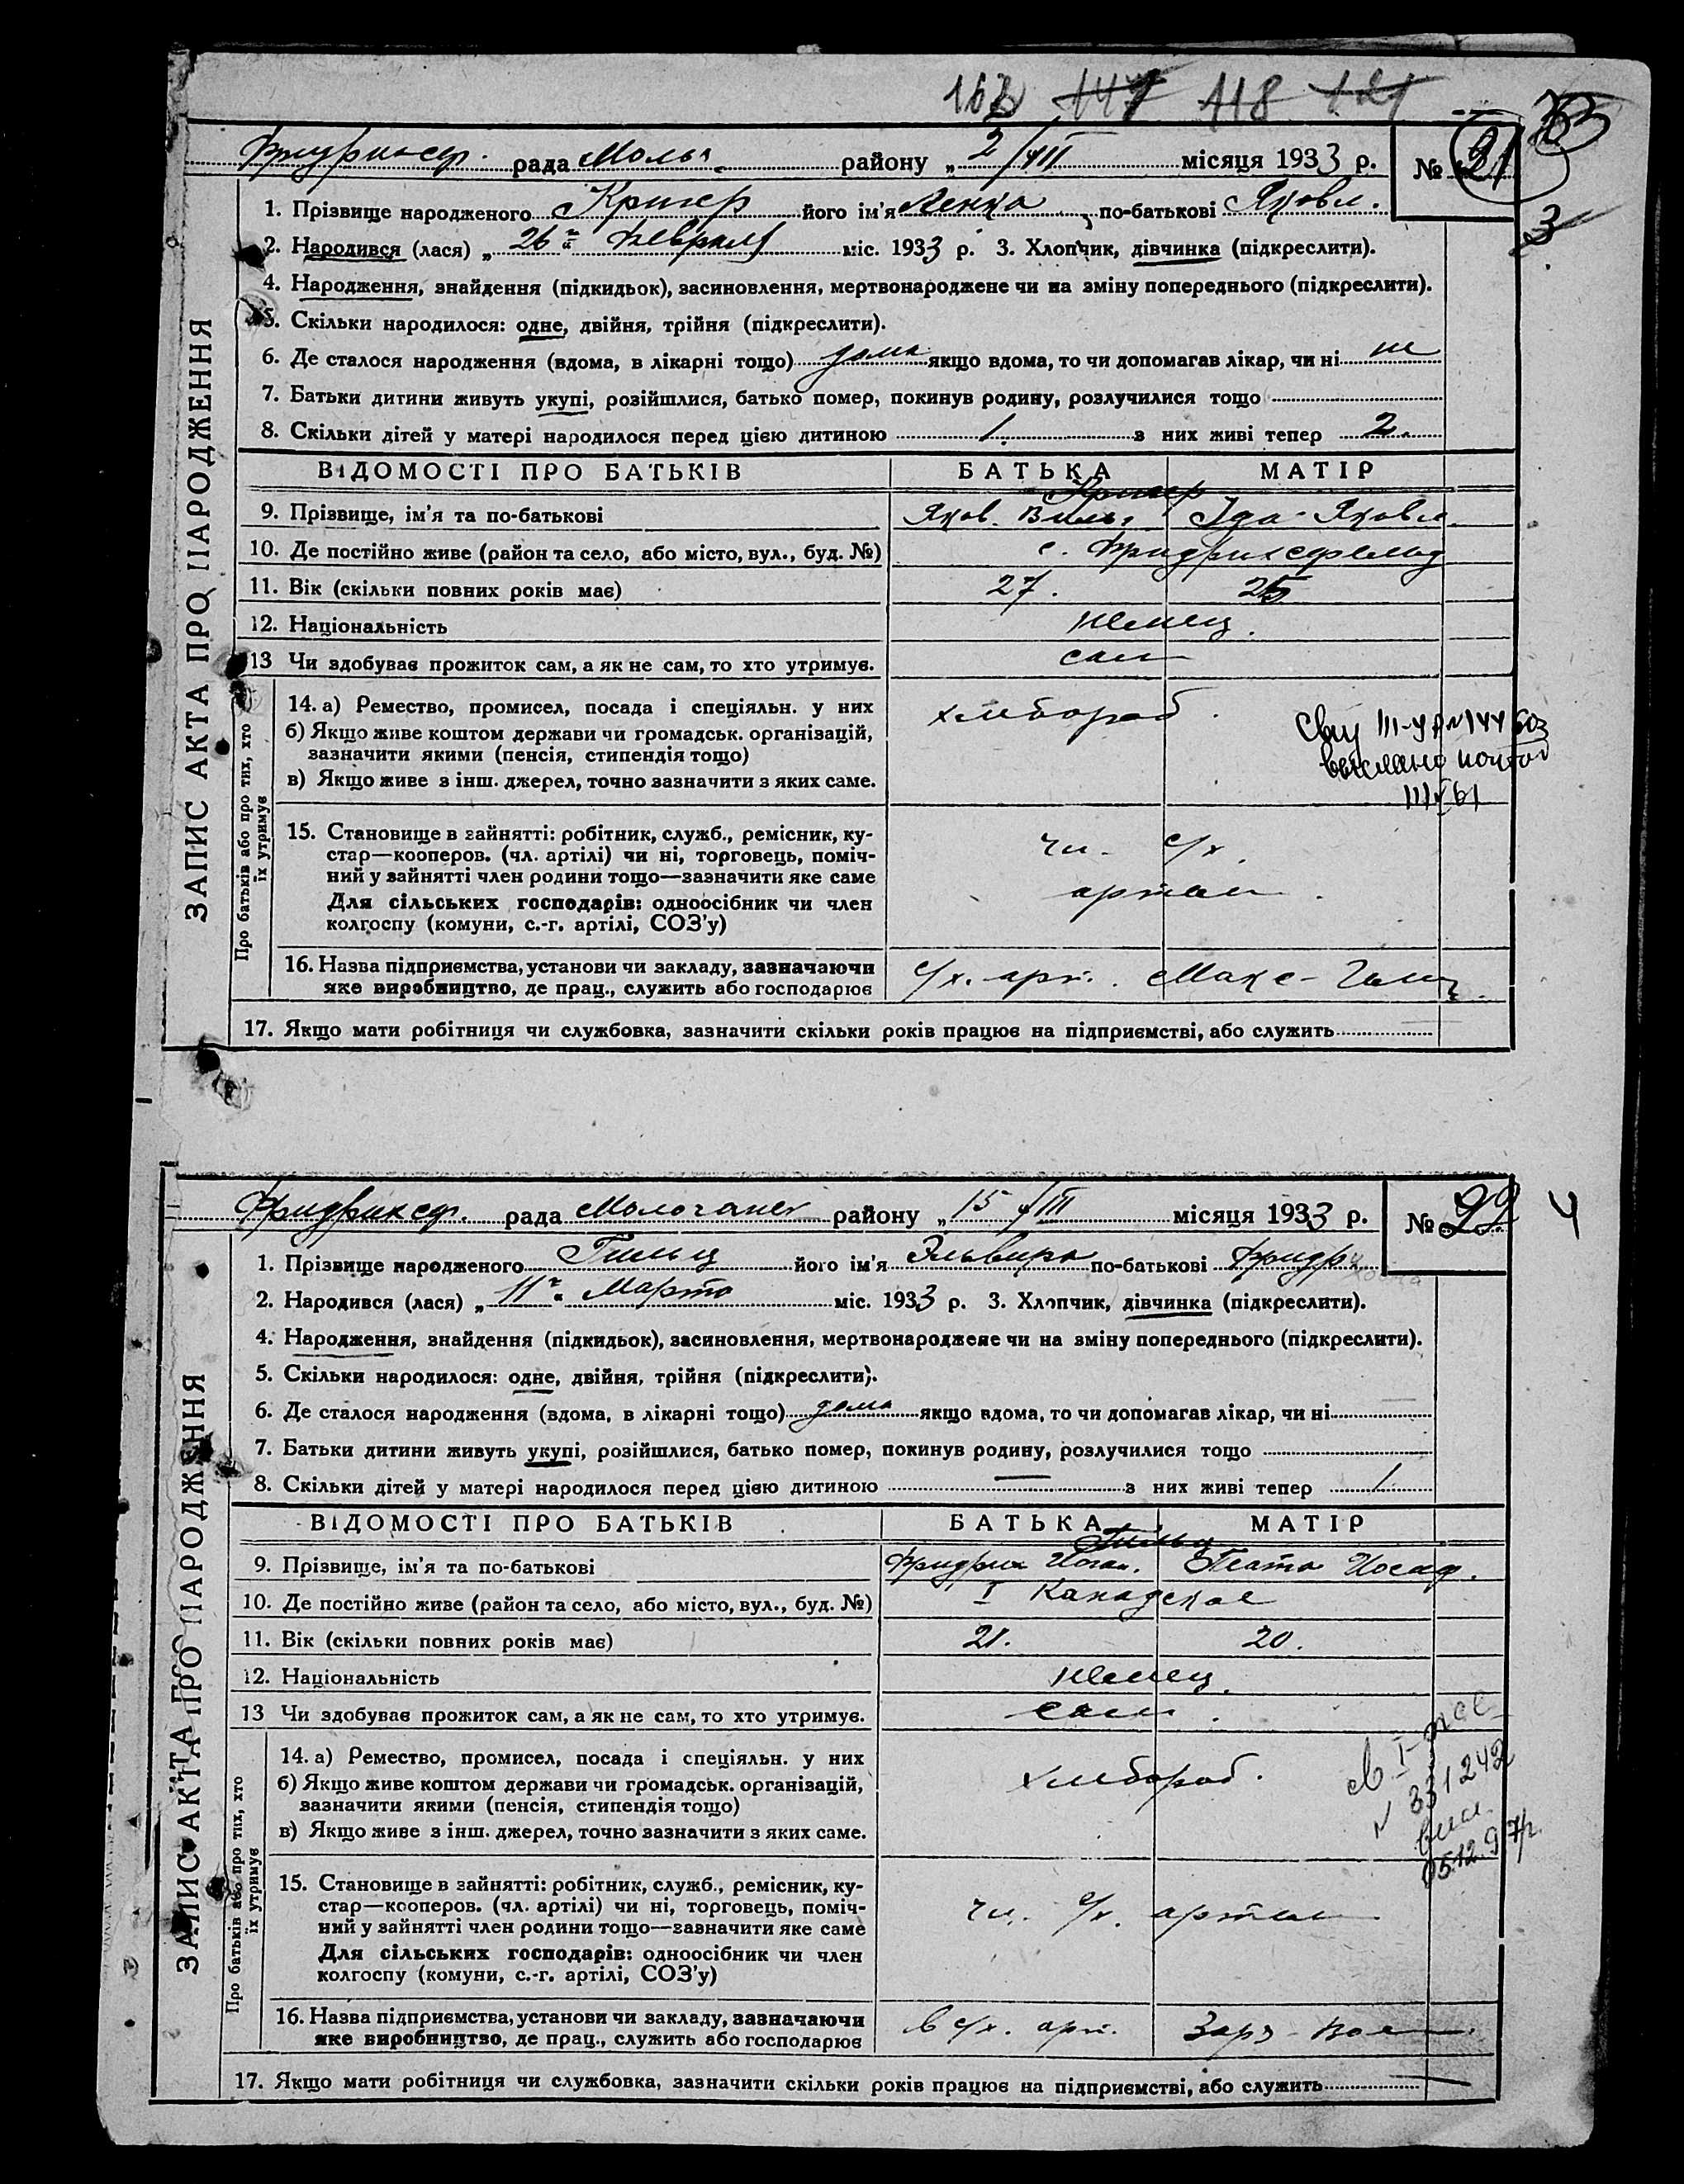 118
Фридрихсф. рада Молоч. району „2/VIII місяця 1933 р. № 21
3
1. Прізвище народженого Кригер його ім'я Ленка по-батькові Яковл.
2. Народився (лася) „26го“ Февраля міс. 1933 р. 3. Хлопчик, дівчинка (підкреслити).
4. Народження, знайдення (підкидьок), засиновлення, мертвонароджене чи на зміну попереднього (підкреслити).
5. Скільки народилося: одне, двійня, трійня (підкреслити).
6. Де сталося народження (вдома, в лікарні тощо) дома якщо вдома, то чи допомагав лікар, чи ні не
7. Батьки дитини живуть укупі, розійшлися, батько помер, покинув родину, розлучилися тощо
8. Скільки дітей у матері народилося перед цією дитиною 1. з них живі тепер 2.
ВІДОМОСТІ ПРО БАТЬКІВ БАТЬКА МАТІР
Кригер
9. Прізвище, ім'я та по-батькові Яков. Вильг. Ида Яковл.
10. Де постійно живе (район та село, або місто, вул., буд. №) с. Фридрихсфельд
11. Вік (скільки повних років має) 27. 25
12. Національність немец.
13 Чи здобуває прожиток сам, а як не сам, то хто утримує. сам
14. а) Ремество, промисел, посада і спеціяльн. у них хлебороб.
б) Якщо живе коштом держави чи громадськ. організацій,
зазначити якими (пенсія, стипендія тощо)
в) Якщо живе з інш. джерел, точно зазначити з яких саме.
15. Становище в зайнятті: робітник, служб., ремісник, ку-
стар—кооперов. (чл. артілі) чи ні, торговець, поміч-
ний у зайнятті член родини тощо—зазначити яке саме
Для сільських господарів: одноосібник чи член
колгоспу (комуни, с.-г. артілі, СОЗ'у)
чл. с/х.
артели
16. Назва підприємства, установи чи закладу, зазначаючи
яке виробництво, де прац., служить або господарює
с/х. арт. Макс-Гельц.
17. Якщо мати робітниця чи службовка, зазначити скільки років працює на підприємстві, або служить
ЗАПИС АКТА ПРО НАРОДЖЕННЯ
Про батьків або про тих, хто
їх утримує
Фридрихсф. рада Молочанск району „15/III місяця 1933 р. № 22 4
1. Прізвище народженого Гильц його ім'я Эльвира по-батькові Фридр
2. Народився (лася) „11го“ Марта міс. 1933 р. 3. Хлопчик, дівчинка (підкреслити).
4. Народження, знайдення (підкидьок), засиновлення, мертвонароджене чи на зміну попереднього (підкреслити).
5. Скільки народилося: одне, двійня, трійня (підкреслити).
6. Де сталося народження (вдома, в лікарні тощо) дома якщо вдома, то чи допомагав лікар, чи ні
7. Батьки дитини живуть укупі, розійшлися, батько помер, покинув родину, розлучилися тощо
8. Скільки дітей у матері народилося перед цією дитиною — з них живі тепер 1
ВІДОМОСТІ ПРО БАТЬКІВ БАТЬКА МАТІР
Гильц
9. Прізвище, ім'я та по-батькові Фридрих Иоган. Иосиф.
10. Де постійно живе (район та село, або місто, вул., буд. №) I Канадское
11. Вік (скільки повних років має) 21. 20.
12. Національність немец.
13 Чи здобуває прожиток сам, а як не сам, то хто утримує. сам.
14. а) Ремество, промисел, посада і спеціяльн. у них хлебороб.
б) Якщо живе коштом держави чи громадськ. організацій,
зазначити якими (пенсія, стипендія тощо)
в) Якщо живе з інш. джерел, точно зазначити з яких саме.
№ 331242
15. Становище в зайнятті: робітник, служб., ремісник, ку-
стар—кооперов. (чл. артілі) чи ні, торговець, поміч-
ний у зайнятті член родини тощо—зазначити яке саме
Для сільських господарів: одноосібник чи член
колгоспу (комуни, с.-г. артілі, СОЗ'у)
чл. с/х. артели
16. Назва підприємства, установи чи закладу, зазначаючи
яке виробництво, де прац., служить або господарює
в с/х. арт.
17. Якщо мати робітниця чи службовка, зазначити скільки років працює на підприємстві, або служить —
ЗАПИС АКТА ПРО НАРОДЖЕННЯ
Про батьків або про тих, хто
їх утримує